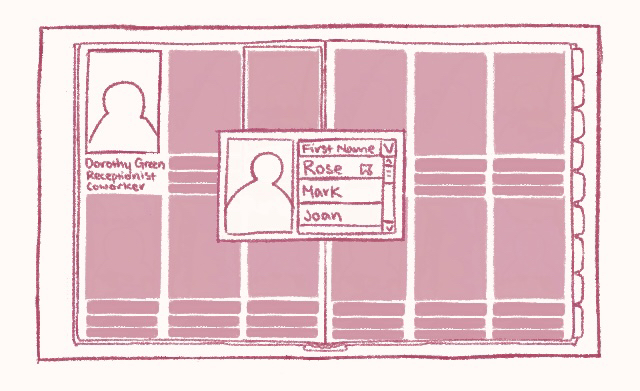 Dorothy Green
Receptionist
Coworker
First Name
Rose
Mark
Joan